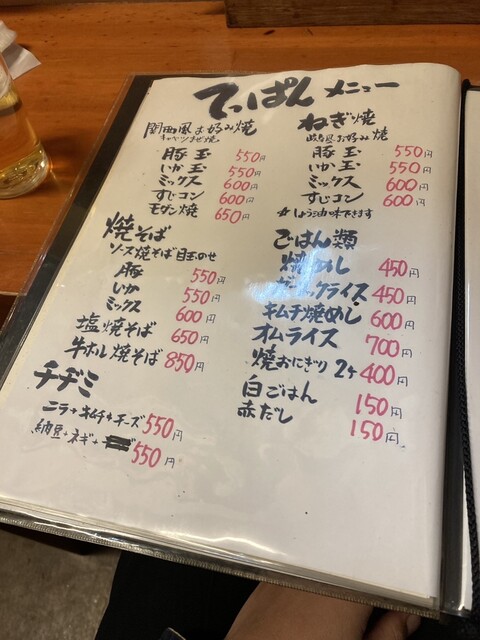 てっぱんメニュー
関西風お好み焼
キャベツまぜ焼
豚玉 550円
いか玉 550円
ミックス 600円
すじコン 600円
モダン焼 650円
焼そば
ソース焼そば目玉のせ
豚 550円
いか 550円
ミックス 600円
塩焼そば 650円
牛ホル焼そば 850円
チヂミ
ニラ+キムチ+チーズ 550円
納豆+ネギ+ 550円
ねぎ焼
岐阜風お好み焼
豚玉 550円
いか玉 550円
ミックス 600円
すじコン 600円
☆しょうゆ味できます
ごはん類
焼めし 450円
ガーリックライス 450円
キムチ焼めし 600円
オムライス 700円
焼おにぎり 2ケ 400円
白ごはん 150円
赤だし 150円